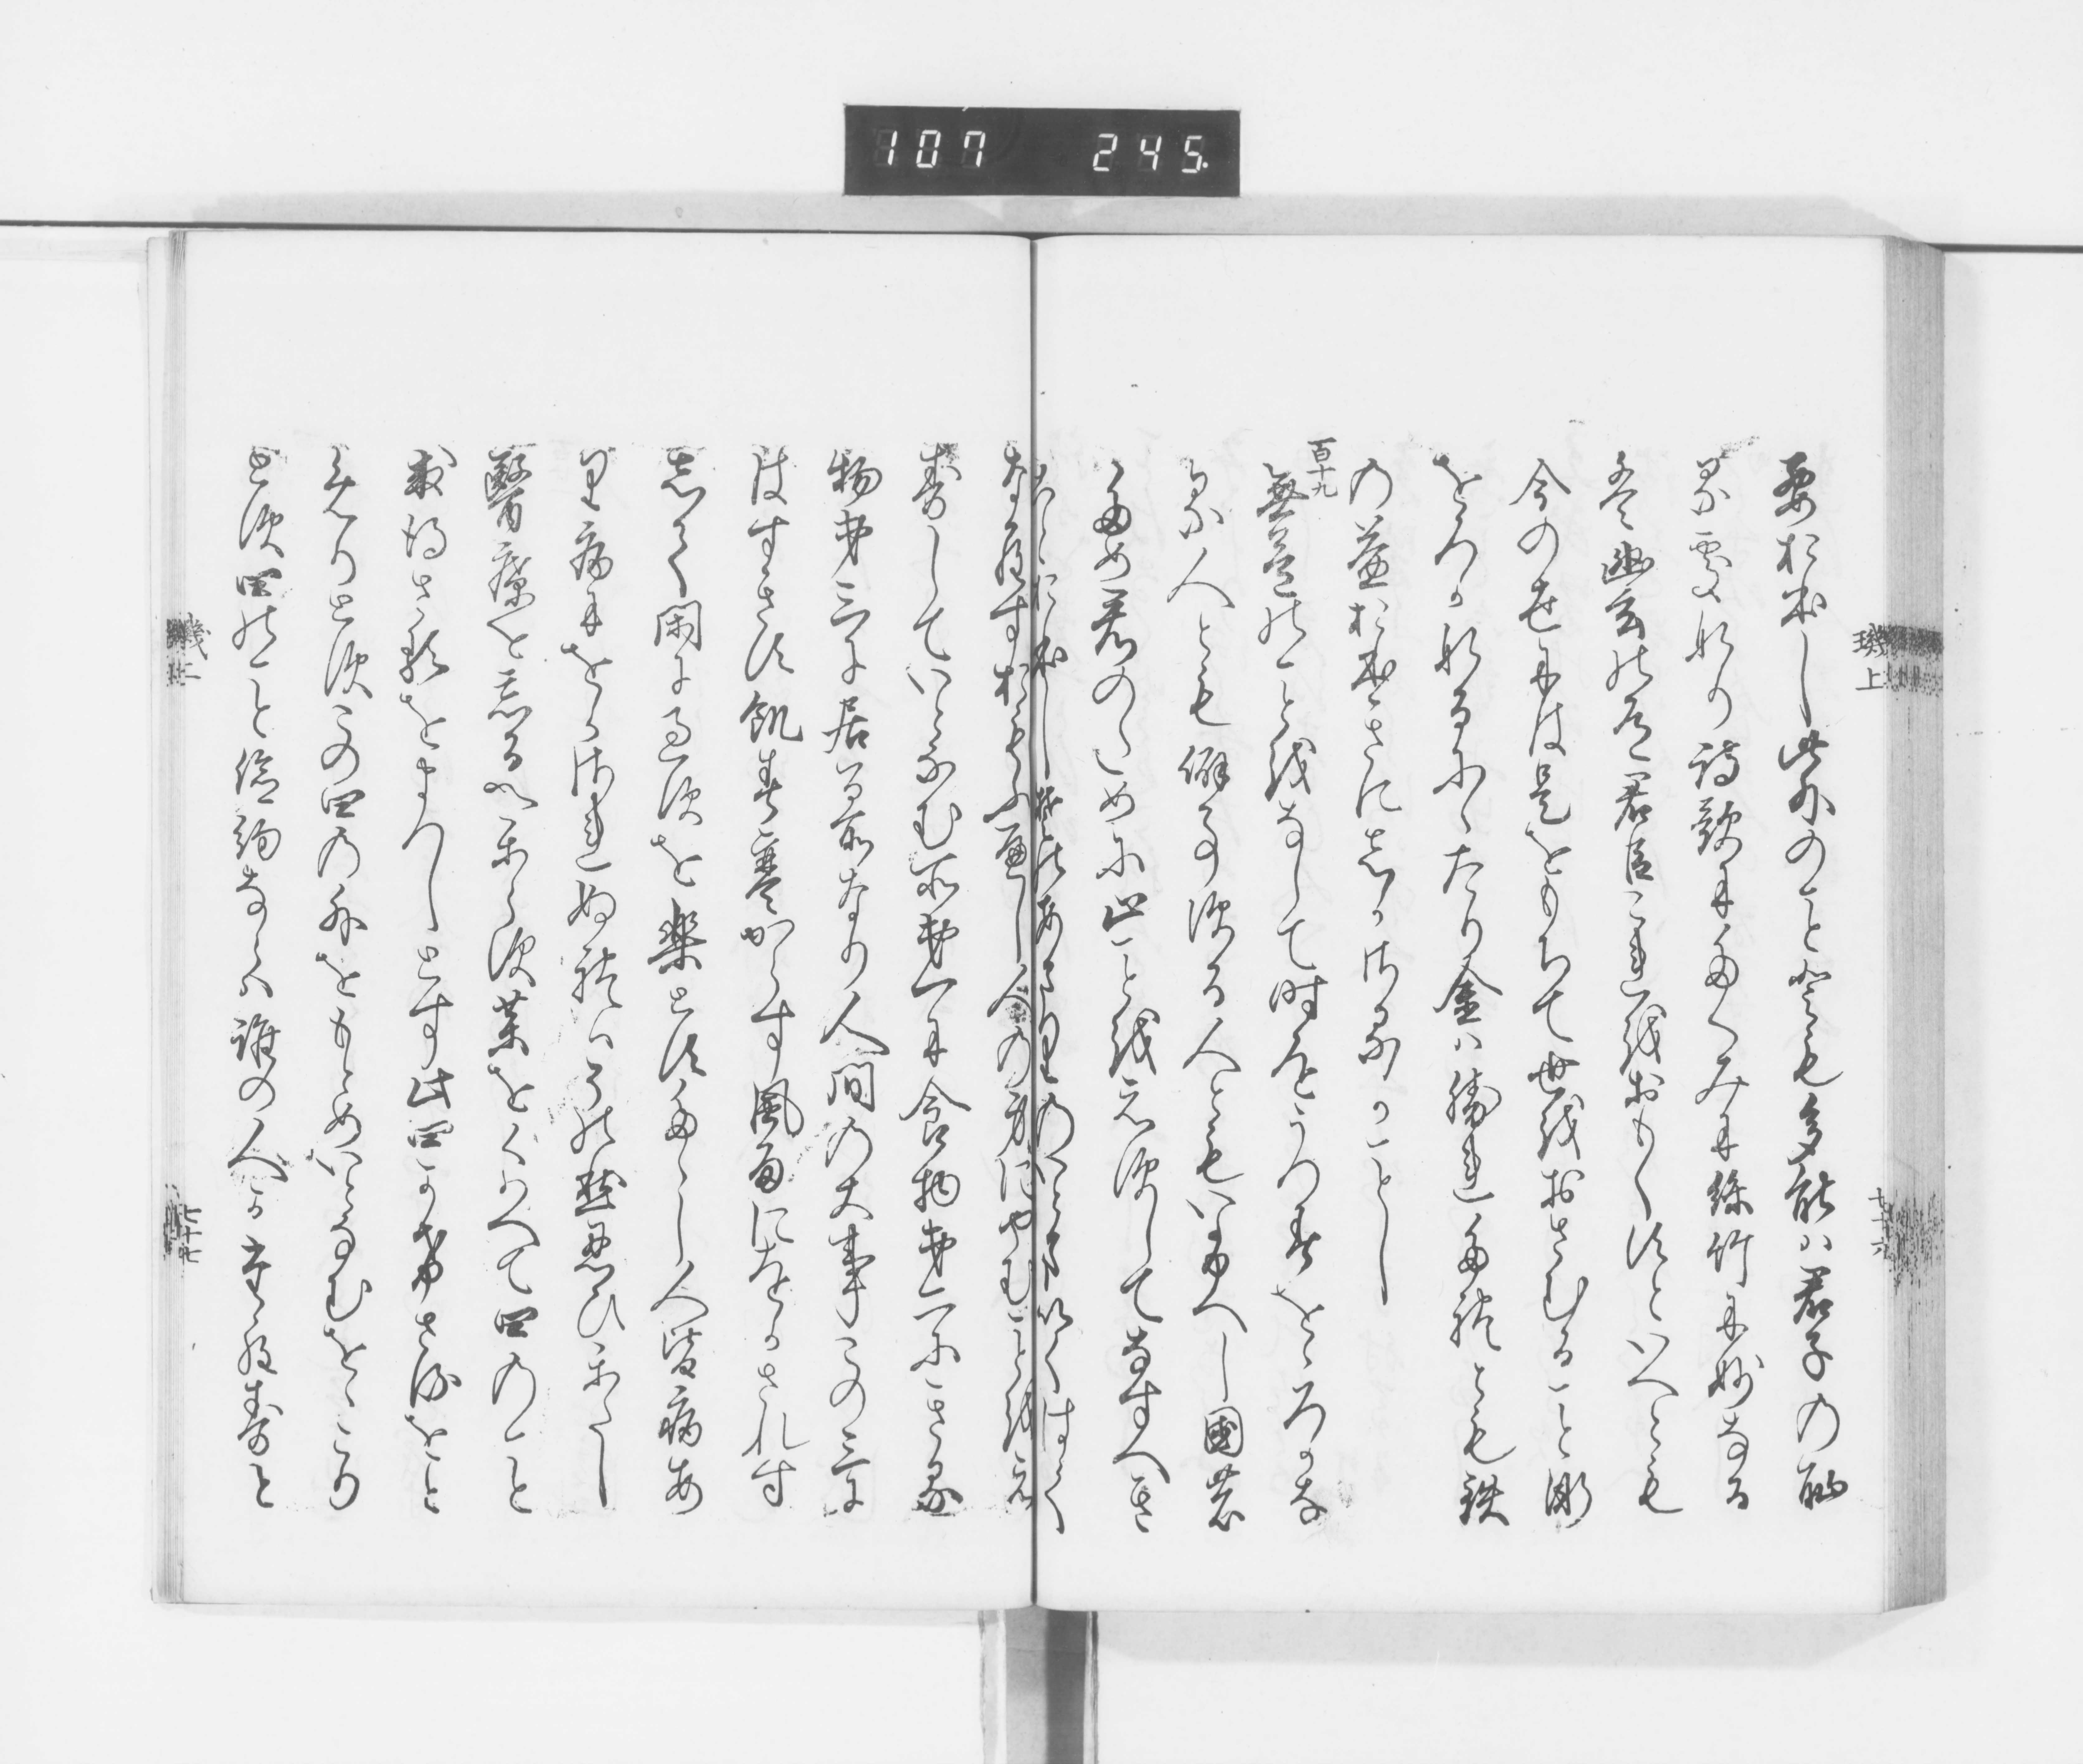 107 245.
璣上
七十六
要おほし此外のことゝも多能は君子の耻
る處なり詩歌にたくみに絲竹に妙なる
は幽玄の道君臣これをおもくすといへとも
今の世には是をもちて世をおさむること漸
をろかなるにゝたり金は勝れたれとも鉄
の益おほきにしかさるかことし
百十九
無益のことをなして時をうつすををろかな
る人とも僻事する人ともいふへし國の
ため君のために止ことを得すしてなすへき
ことおほし其あまりのいとまいくはく
ならすおもふへし人の身にやむことをえ
すしていとなむ所第一に食物第二にきる
物第三に居る所なり人間の大事この三に
はすきす飢す寒からす風雨にをかされす
しつかに過すを楽とすたゝし人皆病あ
り病にをかされぬれはその愁忍ひかたし
醫療を忘るへからす薬をくはへて四のこと
求得さるをまつしとす此四かけさるをと
めりとすこの四の外をもとめいとなむををこり
とす四のこと倹約ならは誰の人か
璣上
七十七